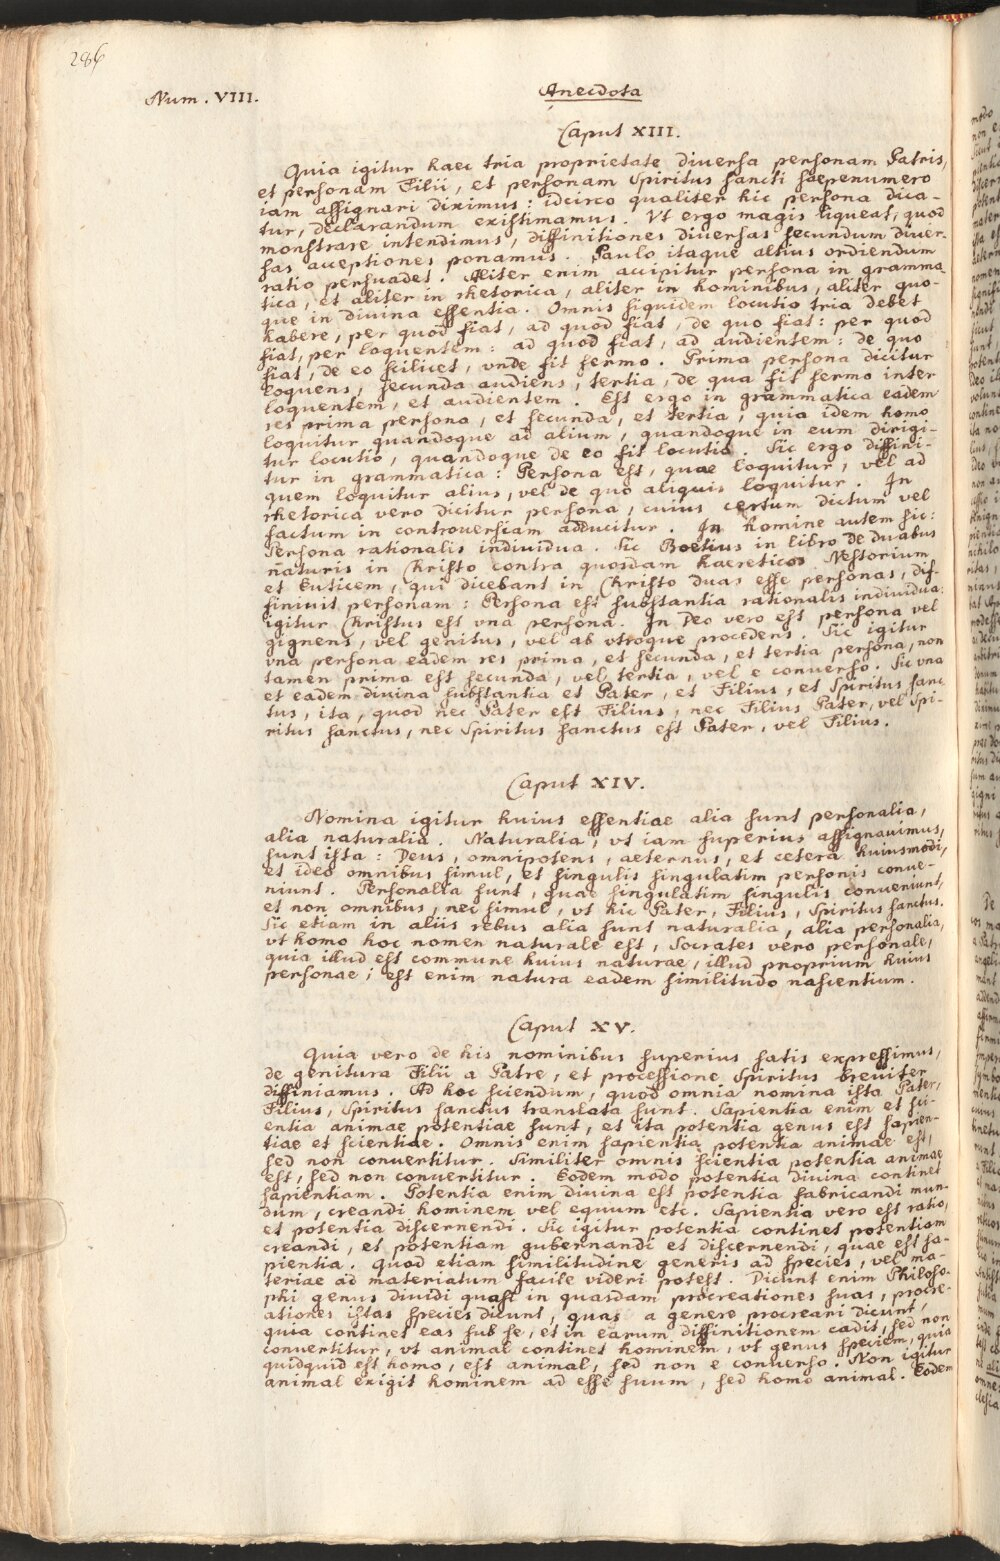 286
Num. VIII.
Anecdota
Caput XIII.
Quia igitur haec tria proprietate diuersa personam Patris,
et personam Filii, et personam Spiritus sancti saepenumero
iam assignari diximus: idcirco qualiter hic persona dica-
tur, declarandum existimamus. Vt ergo magis liqueat, quod
monstrare intendimus, diffinitiones diuersas secundum diuer-
sas acceptiones ponamus. Paulo itaque altius ordiendum
ratio persuadet. Aliter enim accipitur persona in gramma-
tica, et aliter in rhetorica, aliter in hominibus, aliter quo-
que in diuina essentia. Omnis siquidem locutio tria debet
habere, per quod fiat, ad quod fiat, de quo fiat: per quod
fiat, per loquentem: ad quod fiat, ad audientem: de quo
fiat, de eo scilicet, vnde fit sermo. Prima persona dicitur
loquens, secunda audiens, tertia, de qua fit sermo inter
loquentem, et audientem. Est ergo in grammatica eadem
res prima persona, et secunda, et tertia, quia idem homo
loquitur quandoque ad alium, quandoque in eum dirigi-
tur locutio, quandoque de eo fit locutio. Sic ergo diffini-
tur in grammatica: Persona est, quae loquitur, vel ad
quem loquitur alius, vel de quo aliquis loquitur. In
rhetorica vero dicitur persona, cuius certum dictum vel
factum in controuersiam adducitur. In homine autem sic:
Persona rationalis indiuidua. Sic Boetius in libro De duabus
naturis in Christo contra quosdam haereticos Nestorium
et Euticem, qui dicebant in Christo duas esse personas, dif-
finiuit personam: Persona est substantia rationalis indiuidua:
igitur Christus est vna persona. In Deo vero est persona vel
gignens, vel genitus, vel ab vtroque procedens. Sic igitur
vna persona eadem res prima, et secunda, et tertia persona, non
tamen prima est secunda, vel tertia, vel e conuerso. Sic vna
et eadem diuina substantia et Pater, et Filius, et Spiritus sanc
tus, ita, quod nec Pater est Filius, nec Filius Pater, vel Spi-
ritus sanctus, nec Spiritus sanctus est Pater, vel Filius.
Caput XIV.
Nomina igitur huius essentiae alia sunt personalia,
alia naturalia. Naturalia, vt iam superius assignauimus,
sunt ista: Deus, omnipotens, aeternus, et cetera huiusmodi,
et ideo omnibus simul, et singulis singulatim personis conue-
niunt. Personalia sunt, quae singulatim singulis conueniunt,
et non omnibus, nec simul, vt hic Pater, Filius, Spiritus sanctus.
Sic etiam in aliis rebus alia sunt naturalia, alia personalia,
vt homo hoc nomen naturale est, Socrates vero personale,
quia illud est commune huius naturae, illud proprium huius
personae; est enim natura eadem similitudo nascentium.
Caput XV.
Quia vero de his nominibus superius satis expressimus,
de genitura Filii a Patre, et processione Spiritus breuiter
diffiniamus. Ad hoc sciendum, quod omnia nomina ista Pater,
Filius, Spiritus sanctus translata sunt. Sapientia enim et sci-
entia animae potentiae sunt, et ita potentia genus est sapien-
tiae et scientiae. Omnis enim sapientia potentia animae est,
sed non conuertitur. Similiter omnis scientia potentia animae
est, sed non conuertitur. Eodem modo potentia diuina continet
sapientiam. Potentia enim diuina est potentia fabricandi mun-
dum, creandi hominem vel equum etc. Sapientia vero est ratio,
et potentia discernendi. Sic igitur potentia continet potentiam
creandi, et potentiam gubernandi et discernendi, quae est sa-
pientia. Quod etiam similitudine generis ad species, vel ma-
teriae ad materiatum facile videri potest. Dicunt enim Philoso-
phi genus diuidi quasi in quasdam procreationes suas, procre-
ationes istas species dicunt, quas a genere procreari dicunt,
quia continet eas sub se, et in earum diffinitionem cadit, sed non
conuertitur, vt animal continet hominem, vt genus speciem, quia
quidquid est homo, est animal, sed non e conuerso. Non igitur
animal exigit hominem ad esse suum, sed homo animal. Eodem